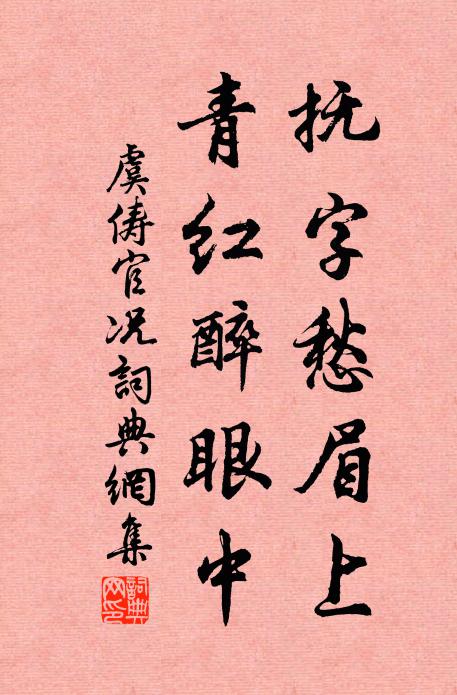 抚字愁眉上
青红醉眼中
虞俦官况词典網集
詞典網印